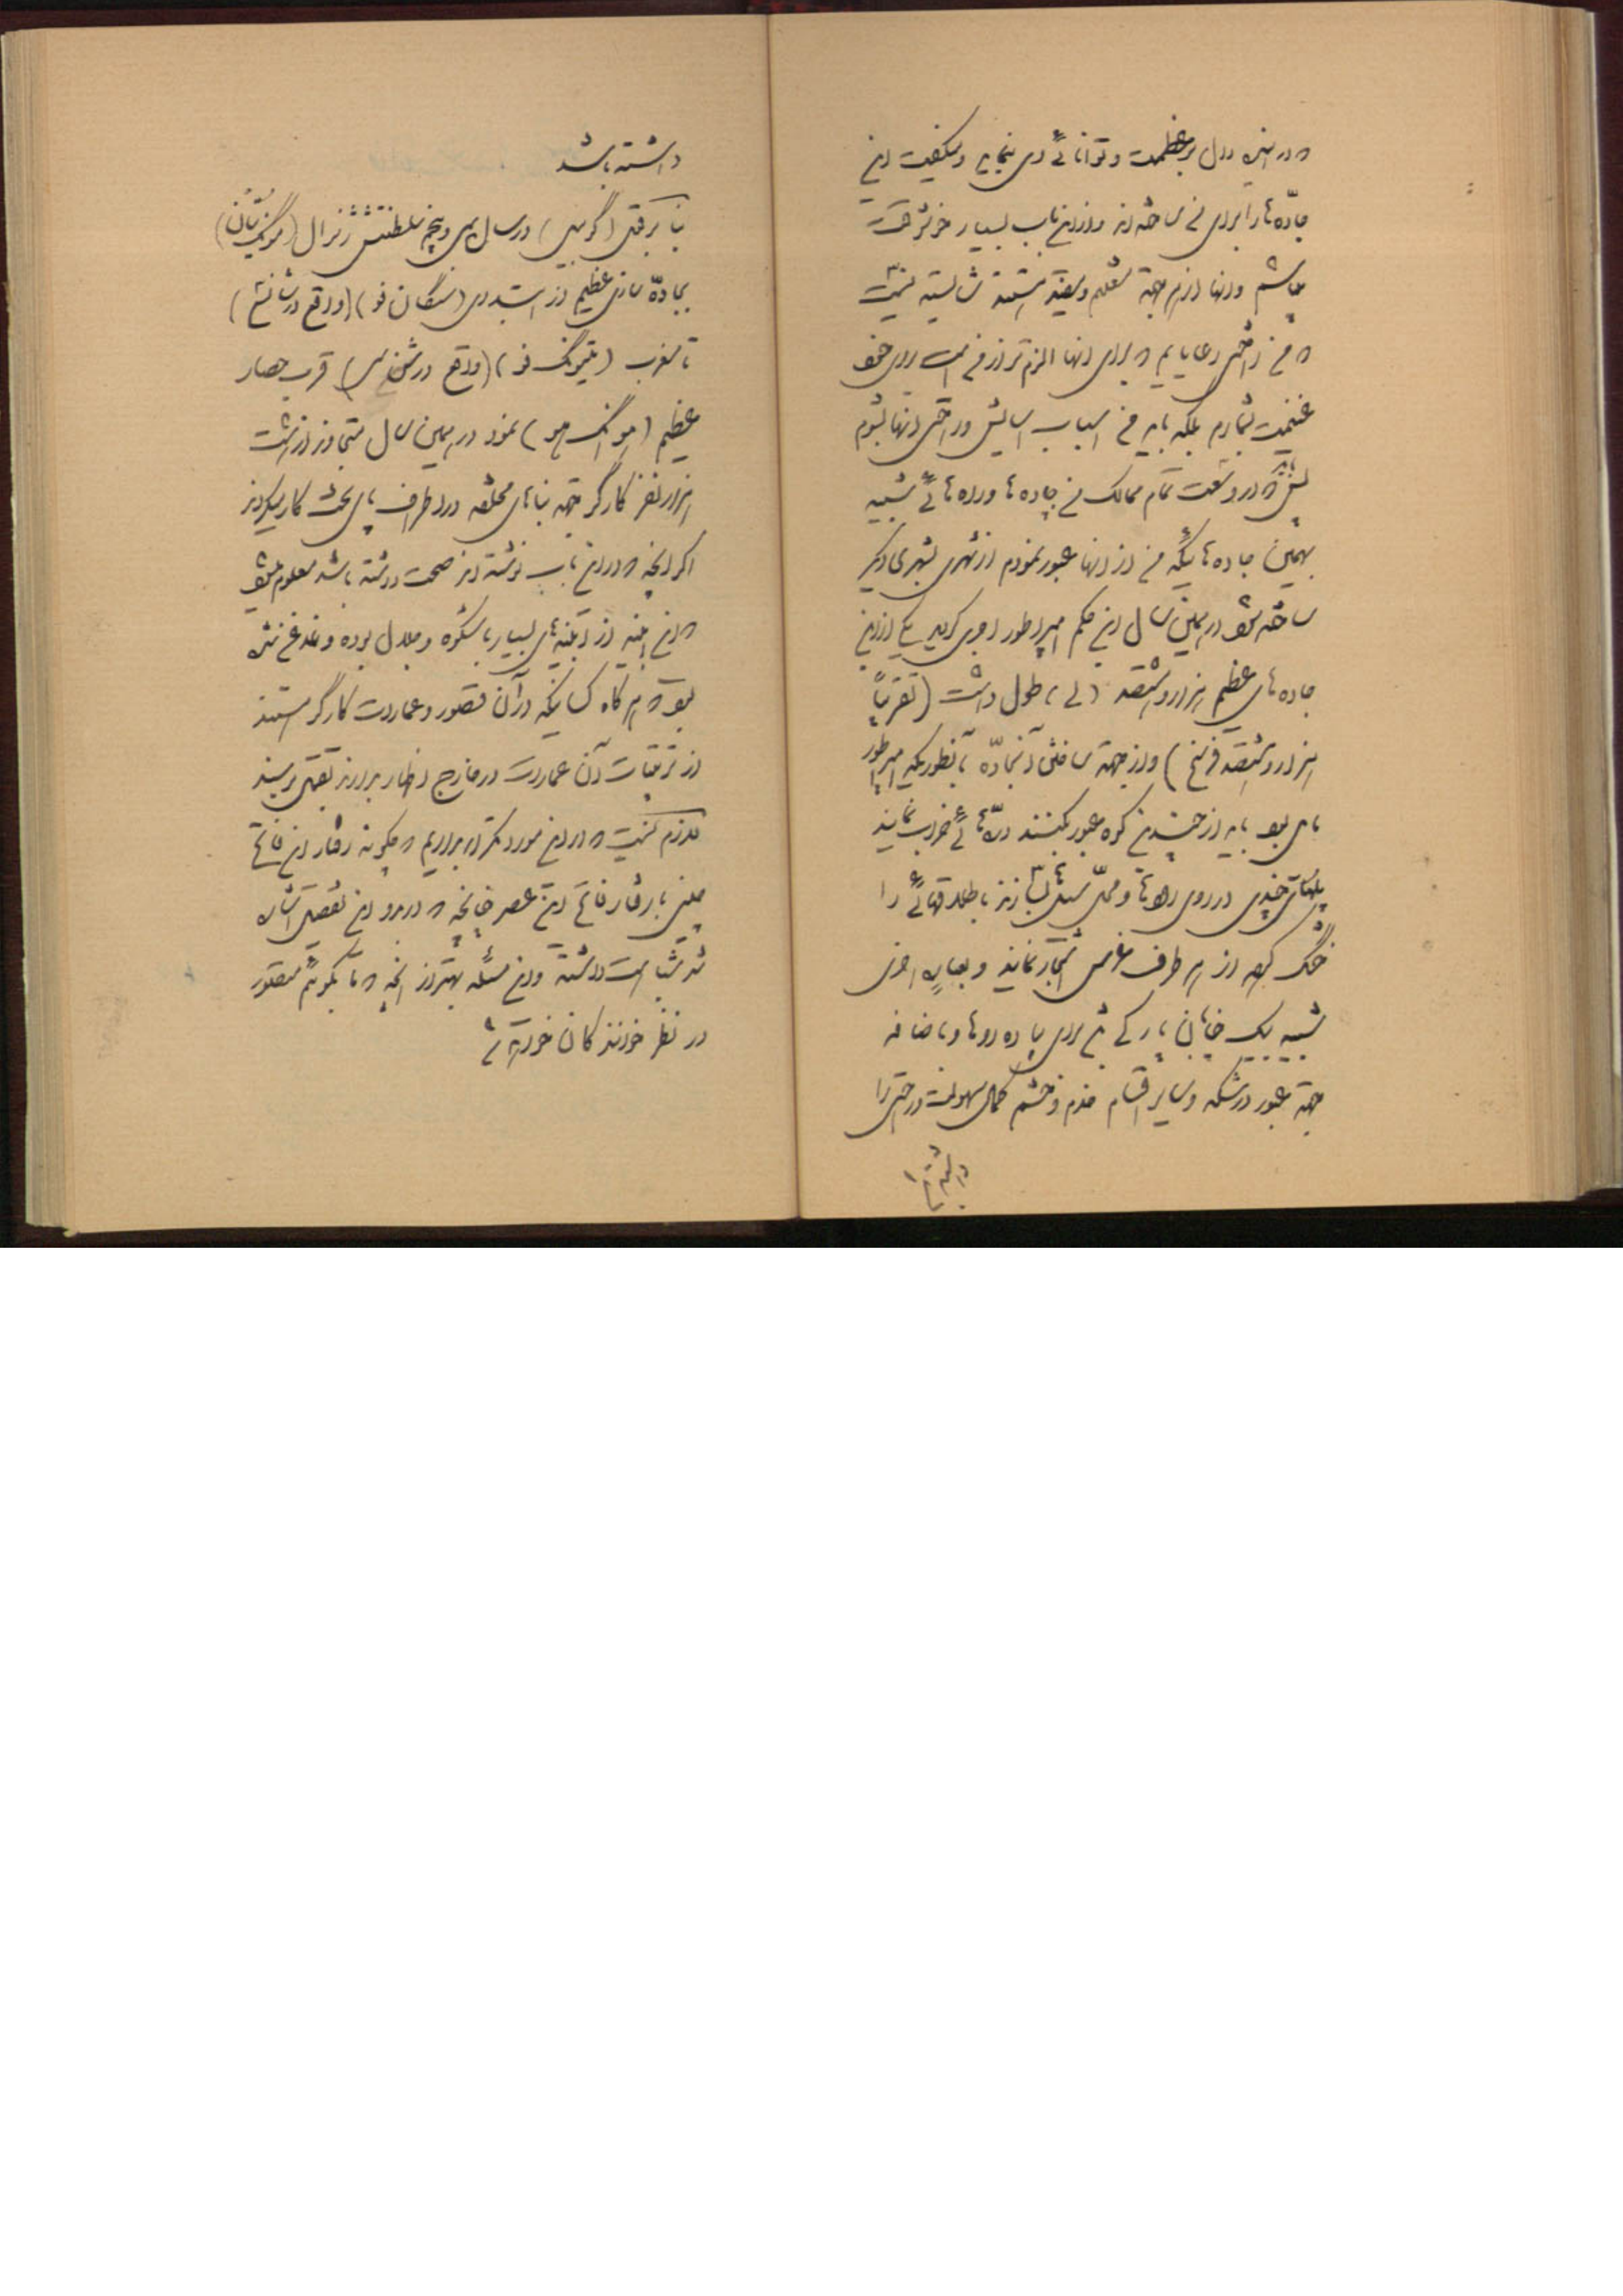 که در انیه دلال بر عظمت و توانائی وی بنماید و بکیفیت این
جاده ها را برای من ساخته اند و از این باب بسیار خوشوقت
میباشم و آنها از هر جهة متعلم و مقید هستند شایسته نیست
که من راحتی رعایایم که برای آنها الزم تر از من است برای خود
غنیمت شمارم بلکه باید من اسباب آسایش و راحتی آنها بشوم
پس باید که در وسعت تمام ممالک من جاده ها و راه هائی شبیه
بهمین جاده هائیکه من از آنها عبور نمودم از شهری بشهری دیگر
ساخته شود در همین سال این حکم امپراطور اجری گردید یکی از این
جاده های عظیم هزار و هشتصد (لی) طول داشت (تقریباً
هزار و هشتصد فرسخ) و از جهة ساختن آنجاده بآنطوریکه امپراطور
مایل بود باید از چندین کوه عبور بکنند درّه هائی خراب نمایند
پلهای چندی در روی رودها و محل سیلها بسازند باطلاقهائی را
خشک کرده از هر طرف غرس اشجار نمایند و بعبارة اخری
شبیه بیک خیابان پارکی هم برای پیاده روها و باضافه
جهة عبور درشکه و سایر اقسام خدم و حشم کمال سهولت و راحتی را
داشته
داشته باشد
بنا برقول (گوبیل) در سال سی و پنجم سلطنتش ژنرال (مونگ تیان)
بجاده سازی عظیم از ابتدای (سنگان فو) (واقع در شانسی)
تا مغرب (یتیونگ فو) (واقع در شن سی) قرب حصار
عظیم (هوانگ هو) نمود در همین سال متجاوز از هشت
هزار نفر کارگر جهة بناهای مختلفه در اطراف پای تخت کار میکردند
اگر آنچه که در این باب نوشته اند صحت داشته باشد معلوم میشود
که این ابنیه از ابنیه های بسیار باشکوه و جلال بوده و غدغن شده
بود که هر گاه کسانیکه در آن قصور و عمارت کارگر هستند
از ترتیبات آن عمارت در خارج اظهار بدارند بقتل برسند
لازم نیست که در این مورد تکرار بداریم که چگونه رفتار این فاتح
چینی با رفتار فاتح این عصر چنانچه که در بدو این تفصیل اشاره
شد شباهت داشته و این مسئله بهتر از آنچه که ما بگوئیم متصور
در نظر خوانندگان خواهد شد